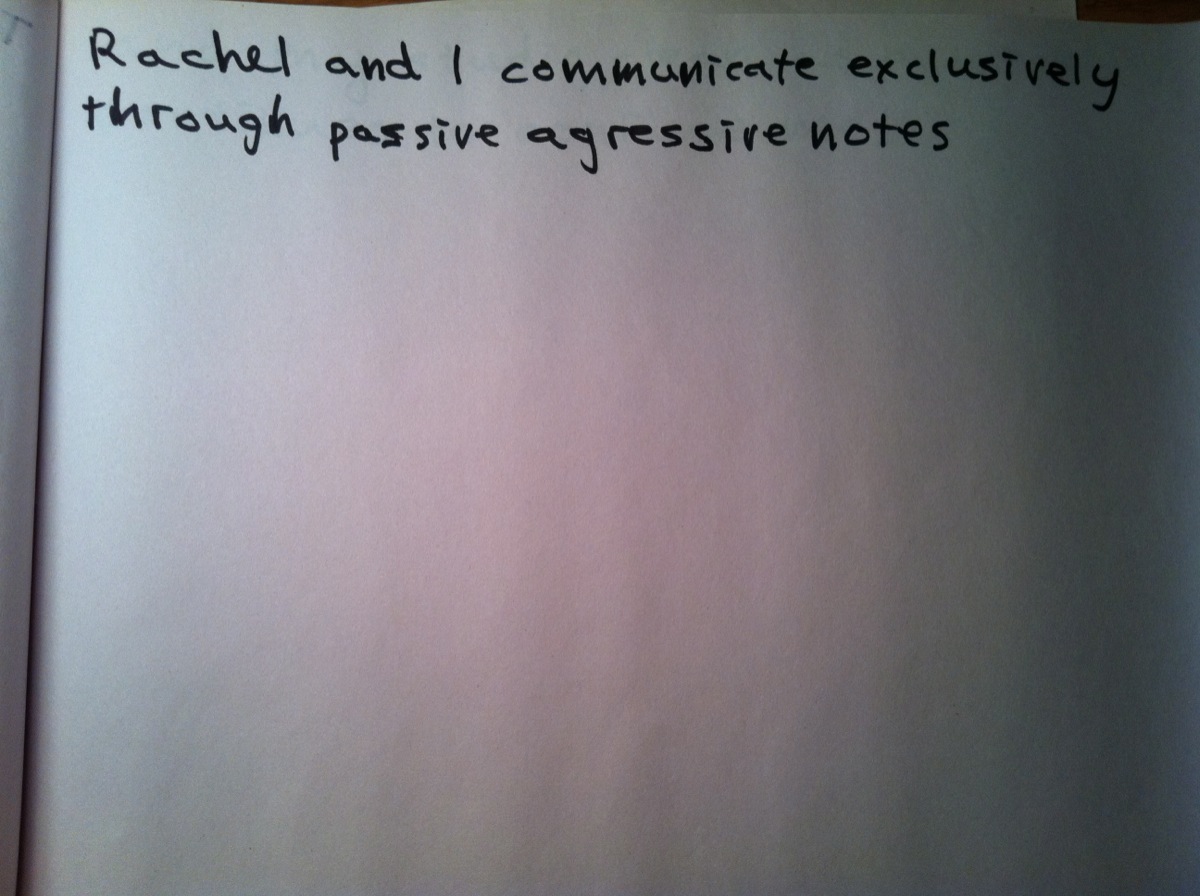 Rachel and I communicate exclusively
through passive agressive notes